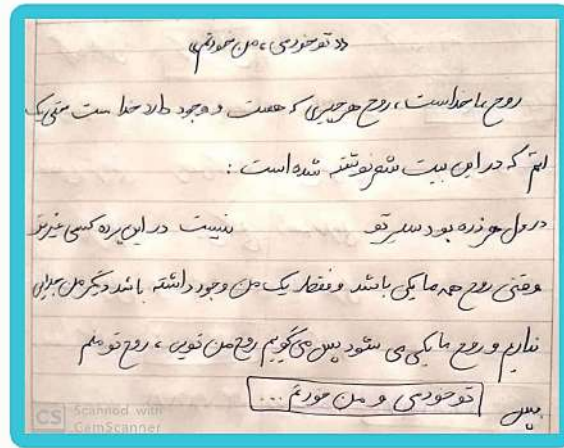 «تو خودمی، من خودتم»
روح ما خداست، روح هر چیزی که هست و وجود دارد خداست حتی یک
اتم که در این بیت شعر نوشته شده است:
در دل هر ذره بود سیر تو نیست در این پرده کسی غیر تو
وقتی روح همه ما یکی باشد و فقط یک من وجود داشته باشد دیگر من جدایی
نداریم و روح ما یکی می شود پس می گویم روح من تویی، روح تو منم
پس تو خودمی و من خودتم ...
CS Scanned with
CamScanner